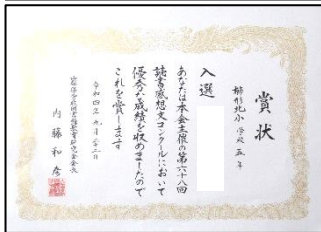 賞状
櫛形北小学校五年
入選
あなたは本会主催の第六十八回
読書感想文コンクールにおいて
優秀な成績を収めましたので
これを賞します
令和四年九月二十二日
内藤和彦